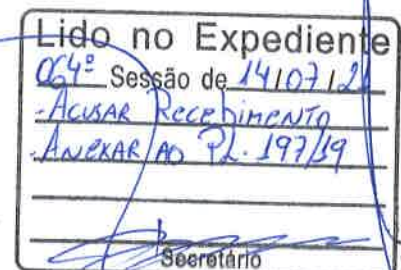 Lido no Expediente
064ª Sessão de 14/07/21
- ACUSAR RECEBIMENTO
- ANEXAR AO PL. 197/19
Secretário